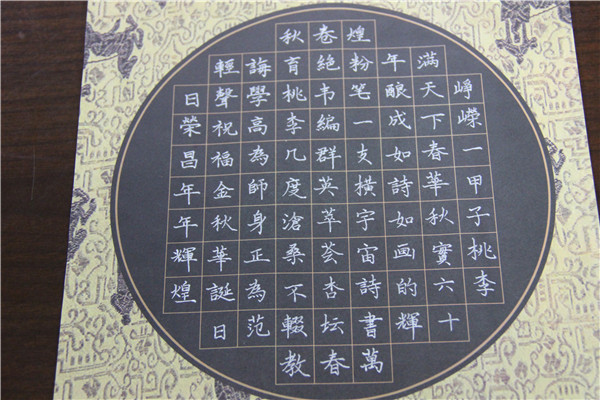 崢嶸一甲子桃李
滿天下春華秋實六十
年酿成如詩如画的輝
煌粉笔一支橫宇宙詩書萬
卷絕韦編群英萃荟杏坛春
秋育桃李几度滄桑不輟教
誨學高為師身正為范
輕聲祝福金秋華誕日
日榮昌年年輝煌